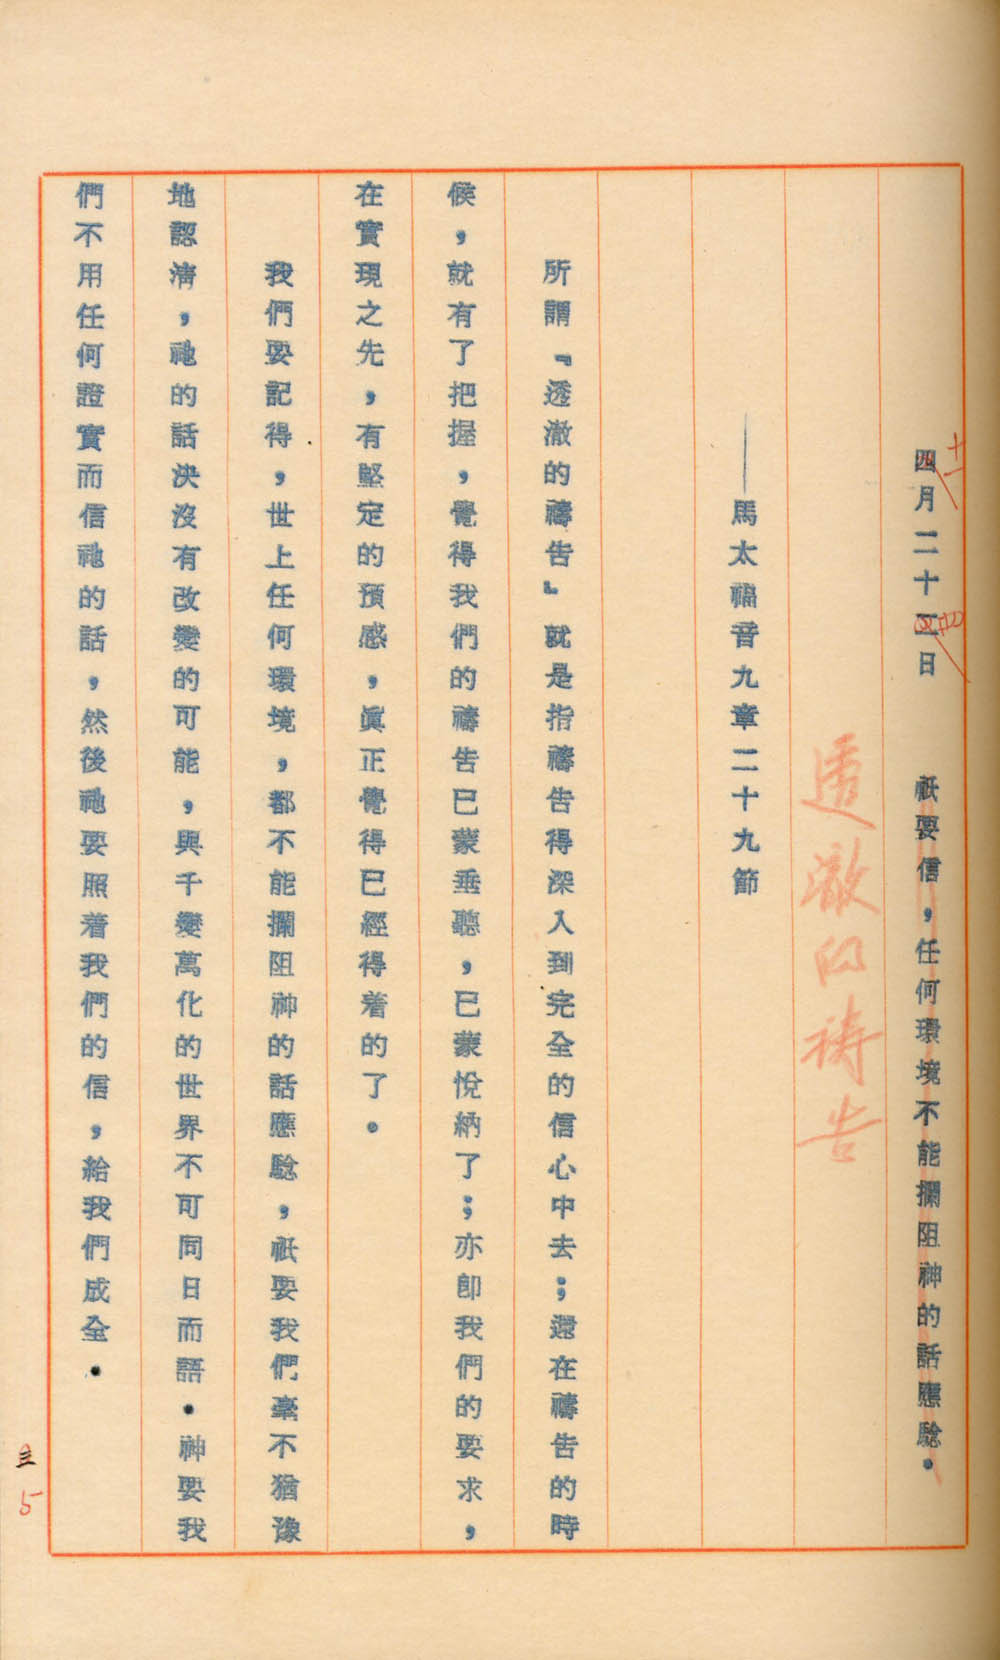 四月二十三日　祇要信，任何環境不能攔阻神的話應驗。
十一
四
透澈的祷告
——馬太福音九章二十九節
所謂『透澈的禱告』就是指禱告得深入到完全的信心中去；還在禱告的時
候，就有了把握，覺得我們的禱告已蒙垂聽，已蒙悅納了；亦卽我們的要求，
在實現之先，有堅定的預感，眞正覺得已經得着的了。
我們要記得，世上任何環境，都不能攔阻神的話應驗，祇要我們毫不猶豫
地認淸，祂的話決沒有改變的可能，與千變萬化的世界不可同日而語。神要我
們不用任何證實而信祂的話，然後祂要照着我們的信，給我們成全。
5